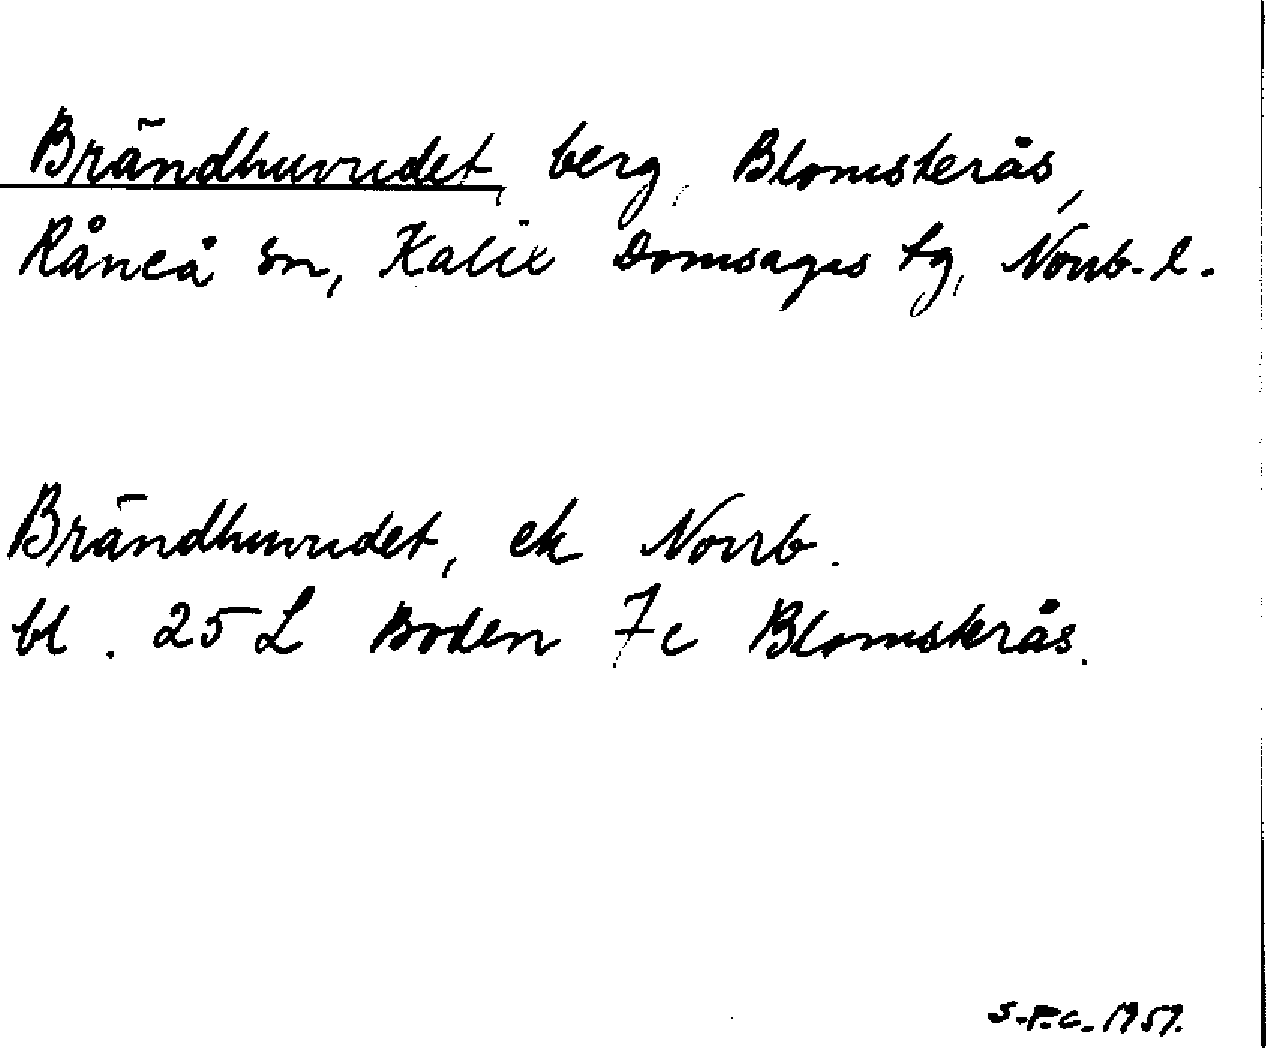 Brändhuvudet, berg, Blomsterås,
Råneå sn, Kalix Domsagas tg, Norrb. l.
Brändhuvudet, ek Norrb.
bl. 25 L Boden 7c Blomsterås.
1957.